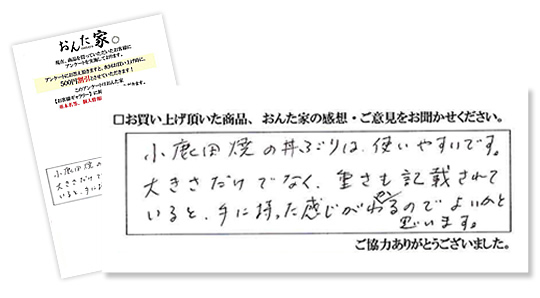 おんた家。
現在、商品を買っていただいたお客様に
アンケートを実施しております。
アンケートにお答え頂きますと、次回お買い上げ時に、
500円割引とさせていただきます！
このアンケートはおんた家
【お客様ギャラリー】に掲
小鹿田焼の
大きさだけで
いると、手に
□お買い上げ頂いた商品、おんた家の感想・ご意見をお聞かせください。
小鹿田焼の丼ぶりは、使いやすいです。
大きさだけでなく、重さも記載されて
いると、手に持った感じがわかるのでよいかと
思います。
ご協力ありがとうございました。